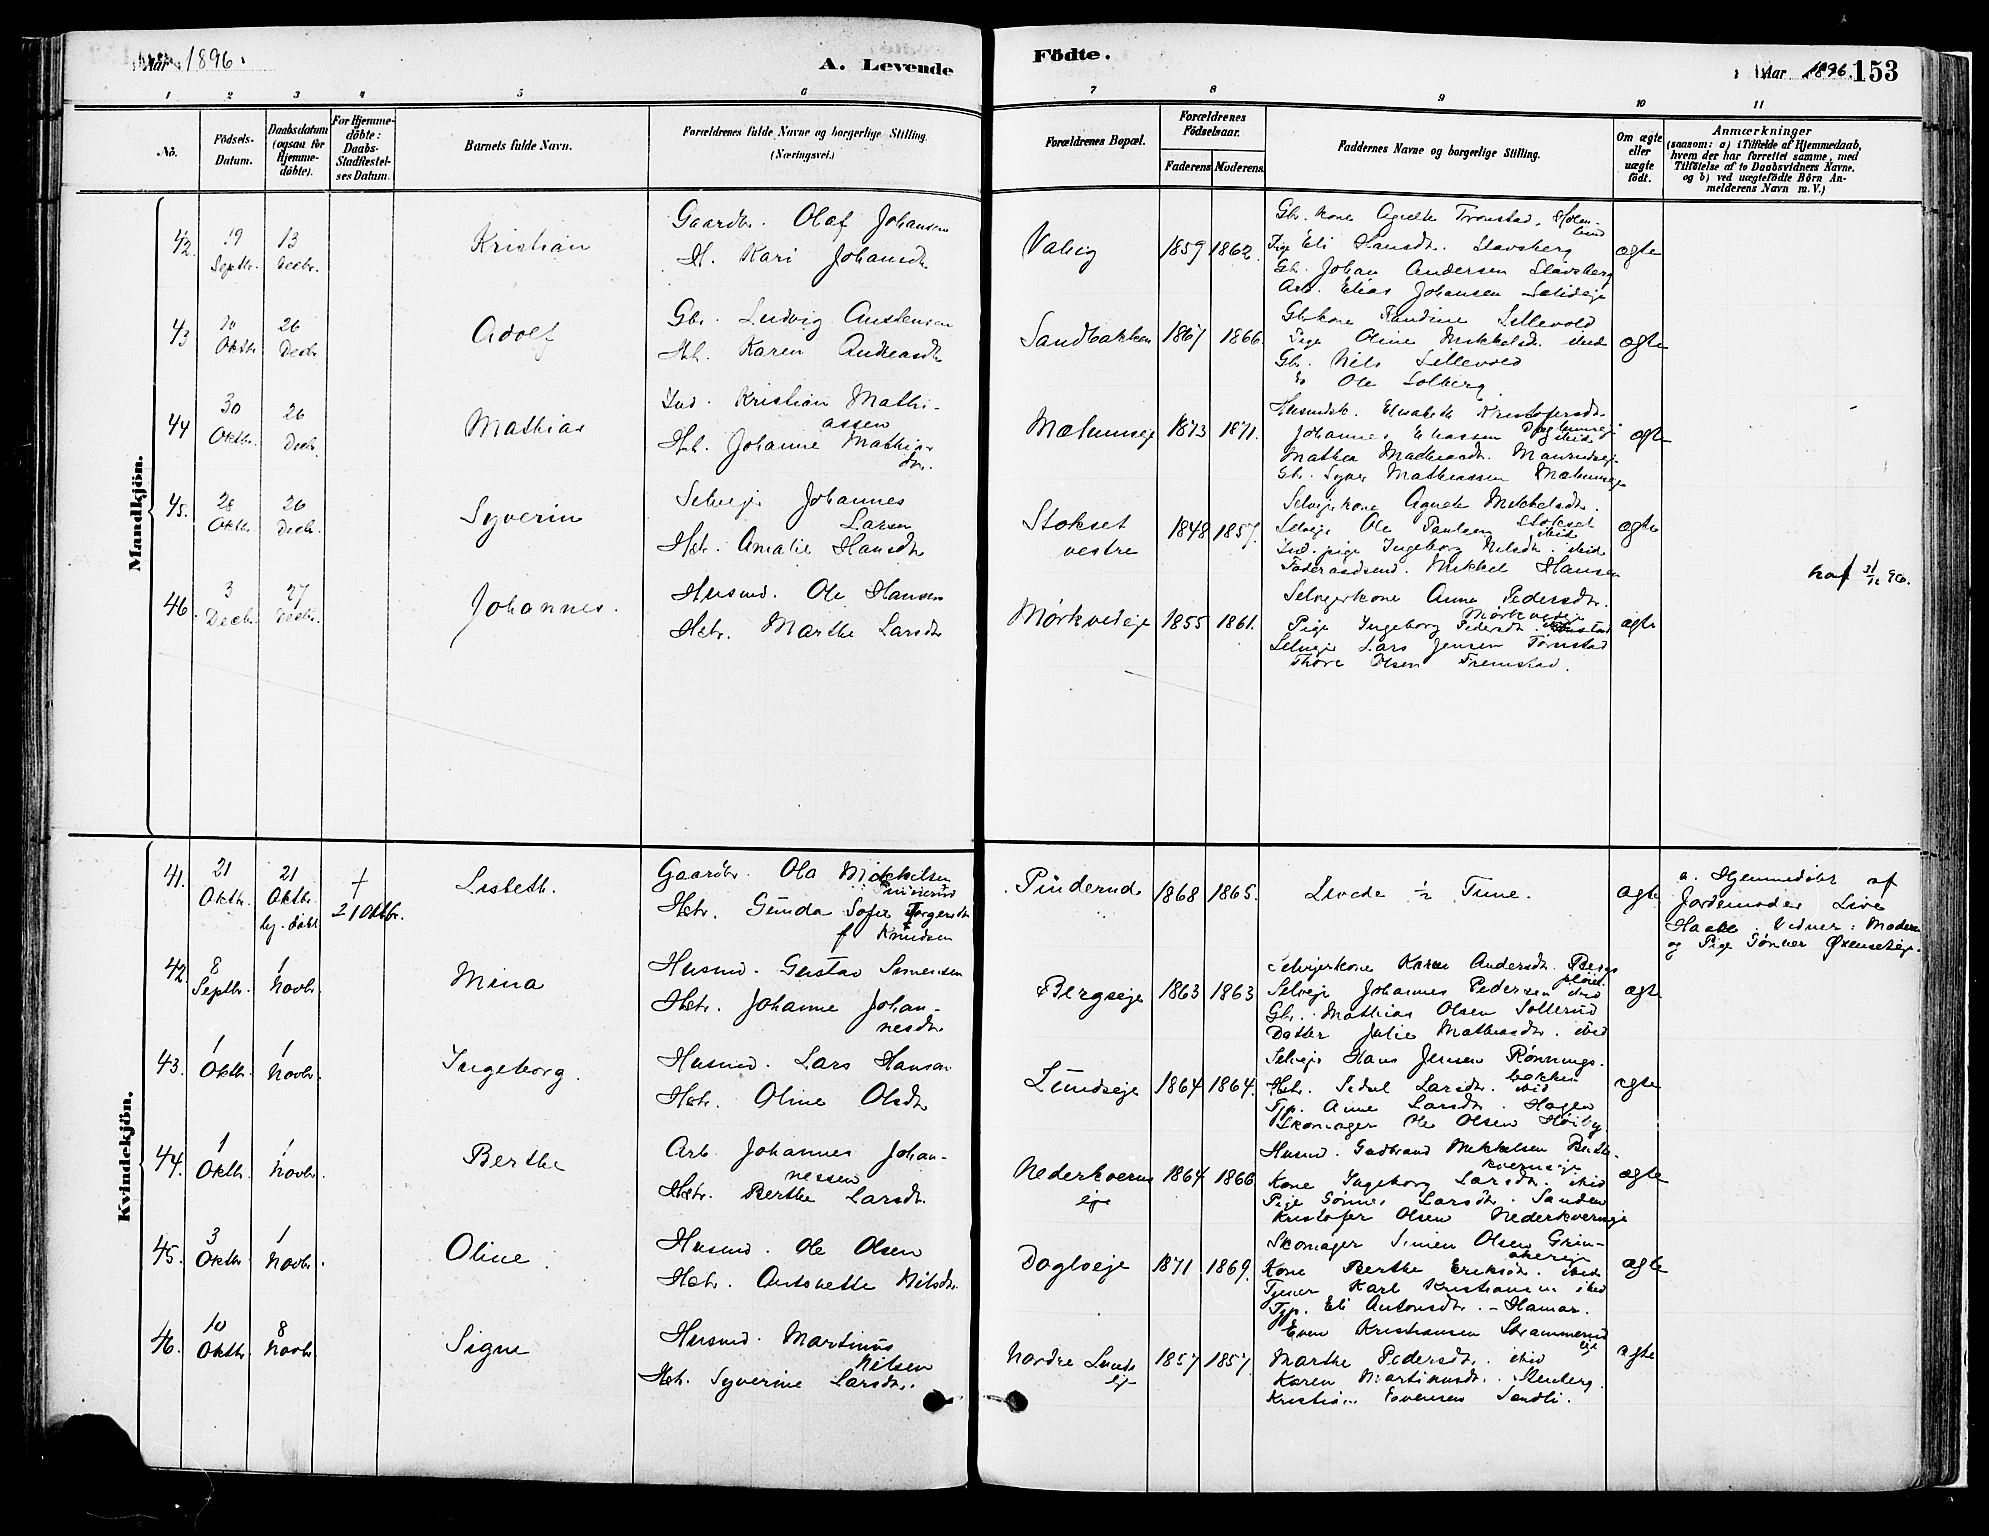 Aar 1896.
A. Levende
Födte.
Aar 1896. 153
1 2 3 4 5 6 7 8 9 10 11
No.
Födsels-Datum.
Daabsdatum (ogsaa för Hjemme-döbte).
For Hjemme-döbte: Daabs-Stadfæstel-ses Datum.
Barnets fulde Navn.
Forældrenes fulde Navne og borgerlige Stilling. (Næringsvei.)
Forældrenes Bopæl.
Forældrenes Födselsaar.
Faderens Moderens
Faddernes Navne og borgerlige Stilling.
Om ægte eller uægte födt.
Anmærkninger
(saasom: a) i Tilfælde af Hjemmedaab,
hvem der har forrettet samme, med
Tilföielse af to Daabsvidners Navne,
og b) ved uægtefödte Börn An-
melderens Navn m. V.)
Mandkjön.
42. 19 Septbr. 13 Decbr. Kristian
Gaardbr. Olaf Johansen
H. Kari Johansdt.
Valvig 1859 1862.
Gbr. kone Agnethe Tronstad,
Pige Eli Hansdt. Stavsberg
Gb. Johan Andersen Stavsberg
Arb. Elias Johansen
ægte
43 10 Oktbr. 26 Decbr Adolf
Gbr. Ludvig Austensen
Hst. Karen Andreasdt.
Sandbakken 1867 1866.
Gbrkone Pauline Lillevold
Pige Oline Mikkelsdt. ibid
Gbr. Nils Lillevold
Ole Solberg
ægte
44 30 Oktbr. 26 Decbr. Mathias
Ind. Kristian Mathi-
assen
Hst. Johanne Mathias-
dtr.
Mælumseje 1873 1871.
Husmdsk. Elisabeth Kristofersdt.
Johannes Eliassen ibid
Mathea Mathiasdt.
Gbr. Syver Mathiassen Mælumseje
ægte
45. 28 Oktbr. 26 Decbr. Syverin
Selveje Johannes
Larsen
Hstr. Amalie Hansdtr
Stokset
vestre
1848 1857.
Selvejerkone Agnete Mikkelsdt.
Stokset
Selveje Ole Paulsen ibid
Ind. pige Ingeborg Nilsdt. ibid
Føderaadsmd. Mikkel Hansen
ægte
46. 3 Decbr. 27 Decbr. Johannes.
Husmd. Ole Hansen
Hstr. Marthe Larsdt
Mørkvedeje 1855 1861.
Selvejerkone Anne Pedersdt.
Mørkvedeje
Pige Ingeborg Pedersdt.
Selveje Lars Jensen Tørnstad
Thore Olsen Fremstad.
ægte
31/12 96.
Kvindekjön.
41. 21 Oktbr. 21 Oktbr. hj. døbt † 21 Oktbr. Lisbeth.
Gaardbr. Ola Mikkelsen
Pinderud
Hstr. Gunda Sofie
f. Knudsen
Pinderud. 1868 1865.
Levede ½ Time.
ægte
a. Hjemmedøbt af
Jordemoder Live
Haake. Vidner: Moderen
og Pige Gønner
42. 8 Septbr. 1 Novbr. Mina
Husmd. Gustav Simensen
Hstr. Johanne Johan-
nesdtr
Bergseje 1863 1863
Selvejerkone Karen Andersdt. Bergs-
Selveje Johannes Pedersen ibid
Gbr. Mathias Olsen Sollerud
Datter Julie Mathiasdt. ibid
ægte
43. 1 Oktbr. 1 Novbr. Ingeborg.
Husmd. Lars Hansen
Hstr. Oline Olsdtr
Lundseje 1864 1864.
Selveje Hans Jensen Rønnings-
bakken
Hstr. Sidsel Larsdt. ibid
Tjp. Anne Larsdt. Hagen
Skomager Ole Olsen Høiby.
ægte
44. 1 Oktbr. 1 Novbr. Berthe
Arb. Johannes Johan-
nessen
Hstr. Berthe Larsdt.
Nederkverns
eje
1864 1866
Husmd. Gudbrand Mikkelsen
kvernseje
Kone Ingeborg Larsdt. ibid
Pige Gønner Larsdt. Sanden
Kristofer Olsen Nederkvernseje
ægte
45. 3 Oktbr. 1 Novbr. Oline
Husmd. Ole Olsen
Hstr. Antonette Nilsdtr
Dagloeje 1871 1869.
Skomager Simen Olsen Grin-
akereje
Kone Berthe Eriksdt. ibid
Tjener Karl Kristiansen ibid
Tjp. Eli Antonsdt. Hamar.
ægte
46. 10 Oktbr. 8 Novbr. Signe
Husmd. Martinus
Nilsen
Hstr. Syverine Larsdt.
Nordre Lunds
eje
1857 1857.
Even Kristiansen Strammerud
eje
Marthe Pedersdt. ibid
Karen Martinusdt. Stenberg.
Kristian Evensen Sandli.
ægte